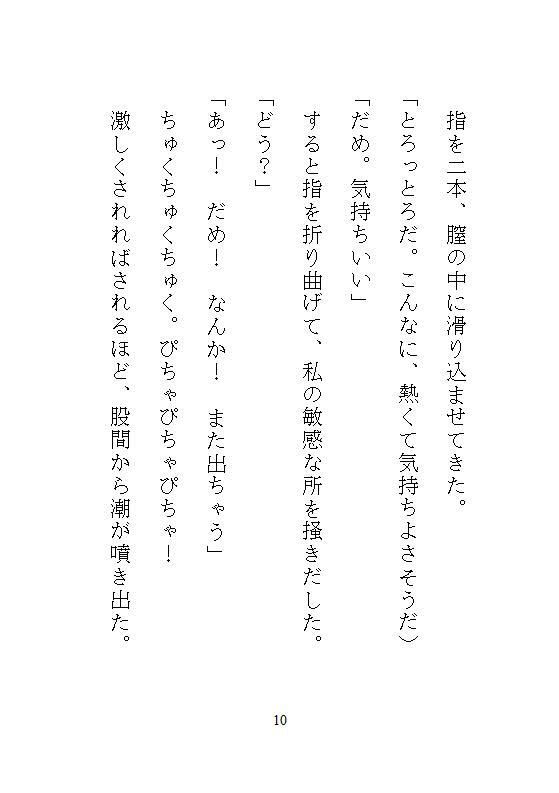 指を二本、膣の中に滑り込ませてきた。
「とろっとろだ。こんなに、熱くて気持ちよさそうだ）
「だめ。気持ちいい」
すると指を折り曲げて、私の敏感な所を掻きだした。
「どう？」
「あっ！　だめ！　なんか！　また出ちゃう」
ちゅくちゅくちゅく。ぴちゃぴちゃぴちゃ！
激しくされればされるほど、股間から潮が噴き出た。
10